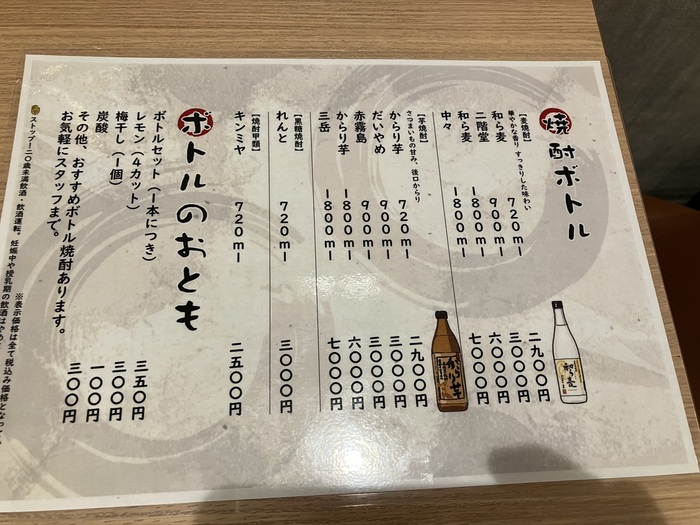 焼酎ボトル
【麦焼酎】
華やかな香り すっきりした味わい
和ら麦 720ml 二九〇〇円
二階堂 900ml 三〇〇〇円
和ら麦 1800ml 七〇〇〇円
中々 1800ml 七〇〇〇円
【芋焼酎】
さつまいもの甘み、後口からり
からり芋 720ml 二九〇〇円
だいやめ 900ml 三〇〇〇円
赤霧島 900ml 三〇〇〇円
からり芋 1800ml 六〇〇〇円
三岳 1800ml 七〇〇〇円
和ら麦
からり芋
【黒糖焼酎】
れんと 720ml 三〇〇〇円
【焼酎甲類】
キンミヤ 720ml 二五〇〇円
ボトルのおとも
ボトルセット（1本につき） 三五〇円
レモン（4カット） 三〇〇円
梅干し（1個） 一〇〇円
炭酸 三〇〇円
その他、おすすめボトル焼酎あります。
お気軽にスタッフまで。
※表示価格は全て税込み価格となって
ストップ！二〇歳未満飲酒・飲酒運転。妊娠中や授乳期の飲酒は